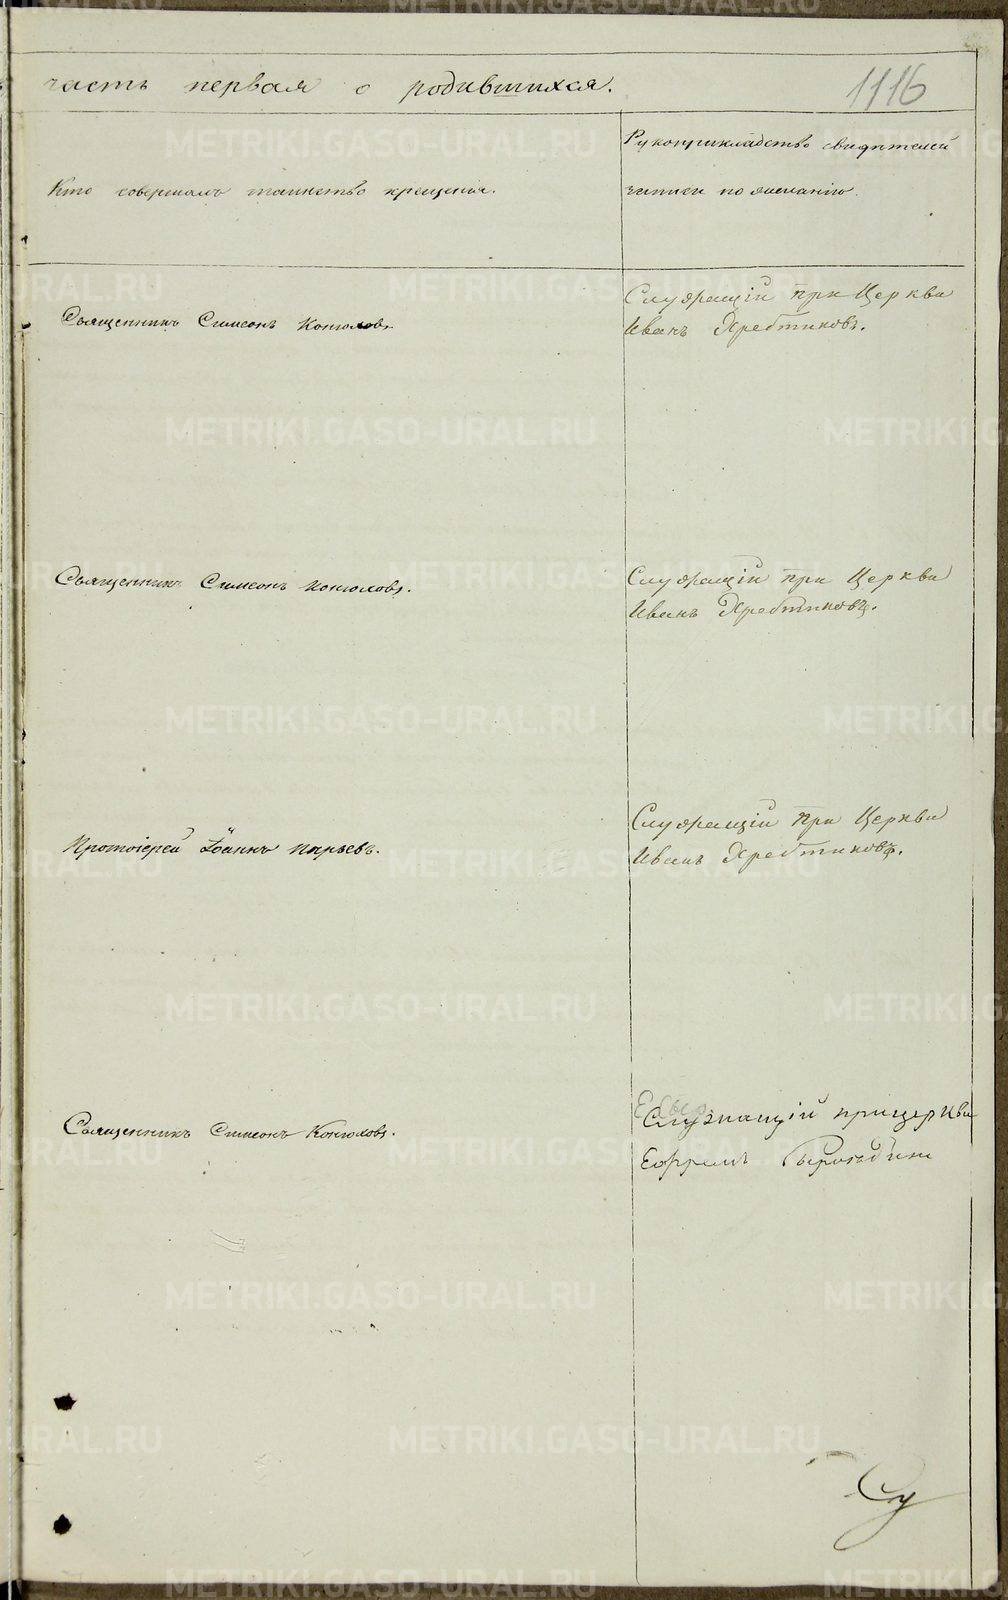 часть первая о родившихся.
1116
Кто совершалъ таинство крещенія.
Рукоприкладство свидѣтелей
записи по желанію.
Священникъ Симеонъ Конюховъ.
Служащій при Церкви
Иванъ Хребтиковъ.
Священникъ Симеонъ Конюховъ.
Служащій при Церкви
Иванъ Хребтиковъ.
Протоіерей Іоаннъ
Служащій при Церкви
Иванъ Хребтиковъ.
Священникъ Симеонъ Конюховъ.
Служащій при церкви
Ефремъ
METRIKI.GASO-URAL.RU